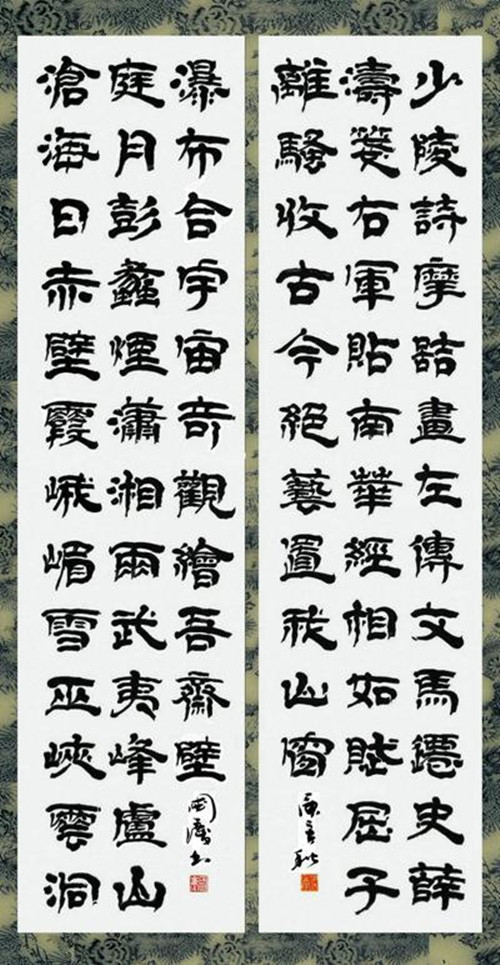 少陵詩摩詰畫左傳文馬遷史薛
濤箋右軍貼南華經相如賦屈子
離騷收古今絕藝置我山窗
庚寅秋
滄海日赤壁霞峨嵋雪巫峽雲洞
庭月彭蠡煙瀟湘雨武夷峰盧山
瀑布合宇宙奇觀繪吾齋壁